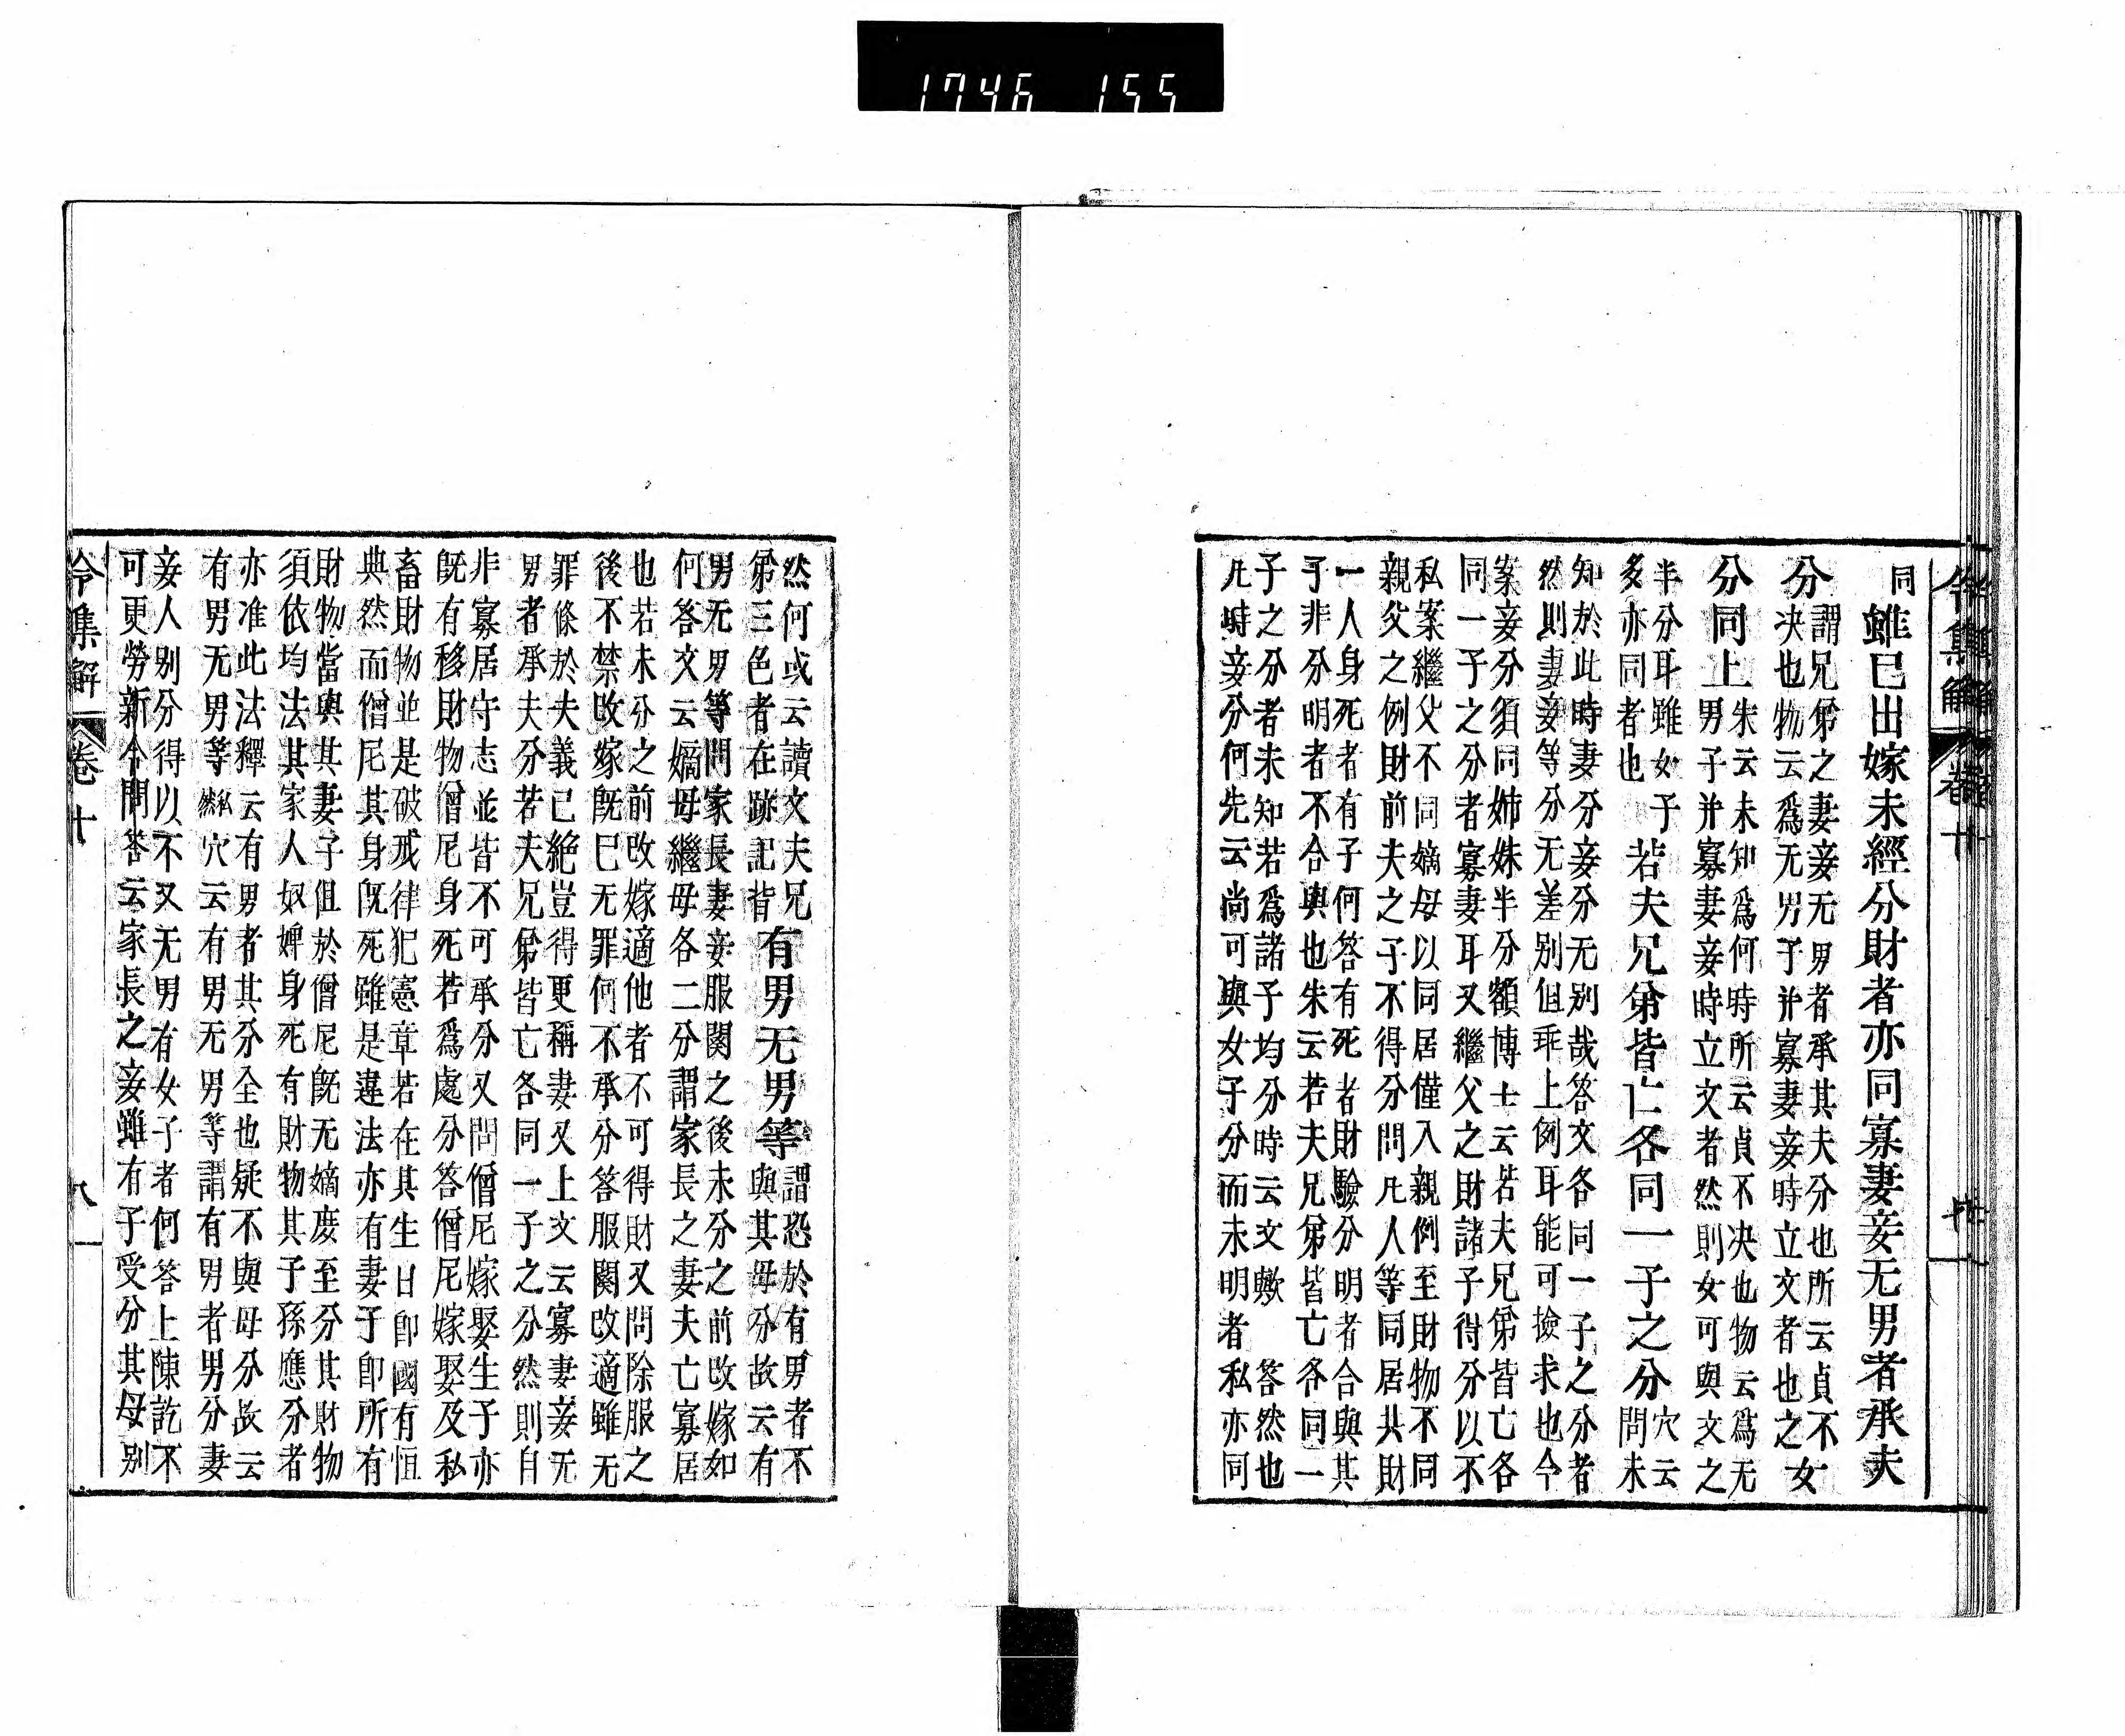 1746 155
令集解 卷十
同 雖已出嫁未經分財者亦同寡妻妾无男者承夫
分
謂兄弟之妻妾无男者承其夫分也所云貞不
决也物云爲无男子并寡妻妾時立文者也之 女
分同上
朱云未知爲何時所云貞不决也物云爲无
男子并寡妻妾時立文者然則女可與文之
半分耳雖女子
多亦同者也
若夫兄弟皆亡各同一子之分
穴云
問未
知於此時妻分妾分无別哉答文各同一子之分者
然則妻妾等分无差別但乖上例耳能可撿求也今
案妾分須同姉妹半分額博士云若夫兄弟皆亡各
同一子之分者寡妻耳又繼父之財諸子得分以不
私案繼父不同嫡母以同居僅入親例至財物不同
親父之例財前夫之子不得分問凡人等同居共財
一人身死者有子何答有死者財驗分明者合與其
子非分明者不合與也朱云若夫兄弟皆亡各同一
子之分者未知若爲諸子均分時云文歟 答然也
凡時妾分何先云尚可與女子分而未明者私亦同
然何或云讀文夫兄
弟三色者在跡記背
有男无男等
謂恐於有男者不
與其母分故云有
男无男等問家長妻妾服闋之後未分之前改嫁如
何答文云嫡母繼母各二分謂家長之妻夫亡寡居
也若未分之前改嫁適他者不可得財又問除服之
後不禁改嫁既已无罪何不承分答服闋改適雖无
罪條於夫義已絶豈得更稱妻又上文云寡妻妾无
男者承夫分若夫兄弟皆亡各同一子之分然則自
非寡居守志並皆不可承分又問僧尼嫁娶生子亦
既有移財物僧尼身死若爲處分答僧尼嫁娶及私
畜財物並是破戒律犯憲章若在其生日即國有恒
典然而僧尼其身既死雖是違法亦有妻子即所有
財物當與其妻子但於僧尼既无嫡庶至分其財物
須依均法其家人奴婢身死有財物其子孫應分者
亦准此法釋云有男者其分全也疑不與母分故云
有男无男等私然穴云有男无男等謂有男者男分妻
妾人别分得以不又无男有女子者何答上陳訖不
可更勞新令問答云家長之妾雖有子受分其母别
令集解 卷十 八